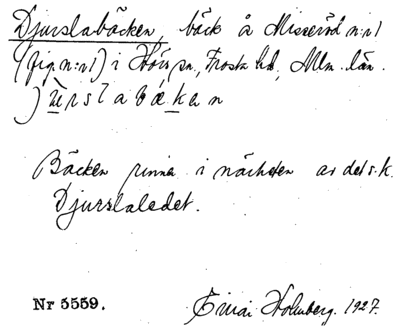 Djurslabäcken, bäck å Misseröd n:r 1
(fig n:r 1) i Hörs sn, Frosta hd, Mlm. län.
Bäcken rinna i närheten av det s.k.
Djurslaledet.
Nr 5559. Einar Holmberg. 1927.